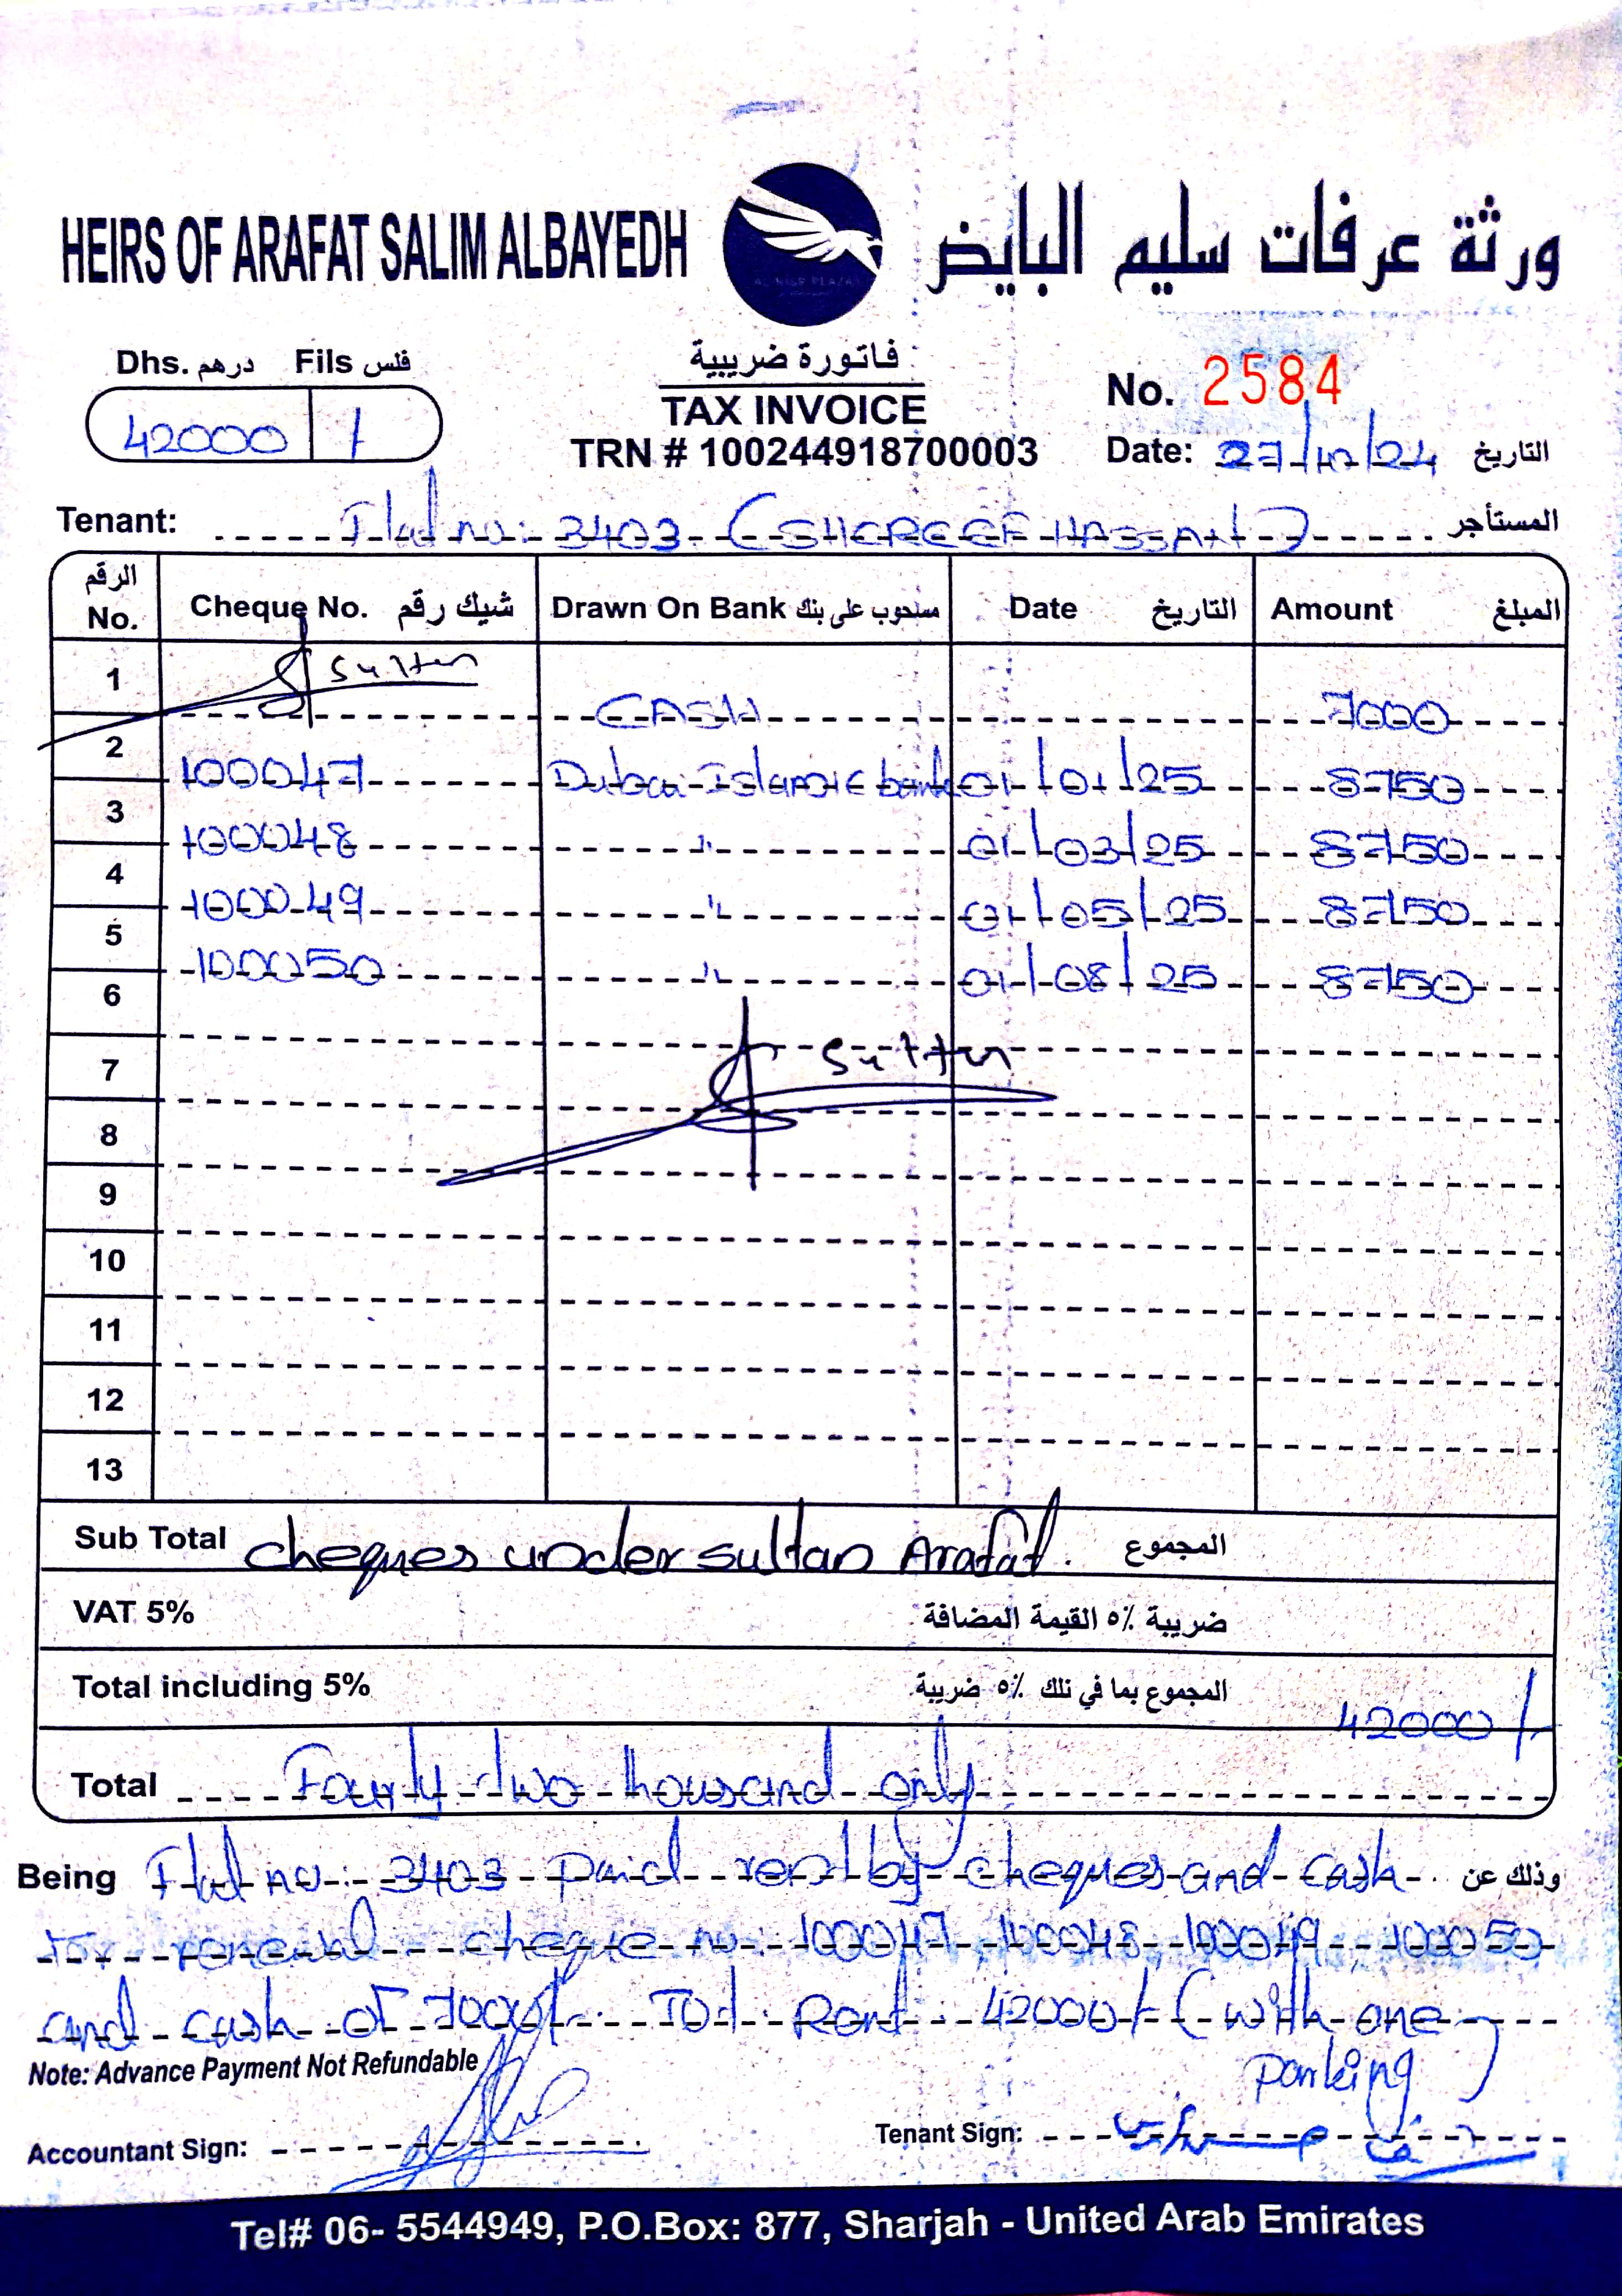 HEIRS OF ARAFAT SALIM ALBAYEDH
ورثة عرفات سليم البايض
AL NISR PLAZA
Dhs. درهم Fils فلس
42000 /
فاتورة ضريبية
TAX INVOICE
TRN # 100244918700003
No. 2584
Date: 27/12/24 التاريخ
Tenant: Flat no: 3403 (SHEREEF HASSAN) المستأجر
الرقم No. Cheque No. شيك رقم Drawn On Bank مسحوب على بنك Date التاريخ Amount المبلغ
1 Sultan CASH 7000
2 100047 Dubai Islamic bank 01/01/25 8750
3 100048 " 01/03/25 8750
4 100049 " 01/05/25 8750
5 100050 " 01/08/25 8750
6
7 Sultan
8
9
10
11
12
13
Sub Total cheques under sultan Arafat. المجموع
VAT 5% ضريبة ٥٪ القيمة المضافة
Total including 5% المجموع بما في تلك ٥٪ ضريبة 42000/
Total Fourty two thousand only
Being Flat no: 3403 paid rent by cheques and cash وذلك عن
for renewal cheque no: 100047 100048 100049 100050
and cash of 7000/- Tot Rent 42000/- (with one
parking)
Note: Advance Payment Not Refundable
Accountant Sign: Tenant Sign:
Tel# 06- 5544949, P.O.Box: 877, Sharjah - United Arab Emirates